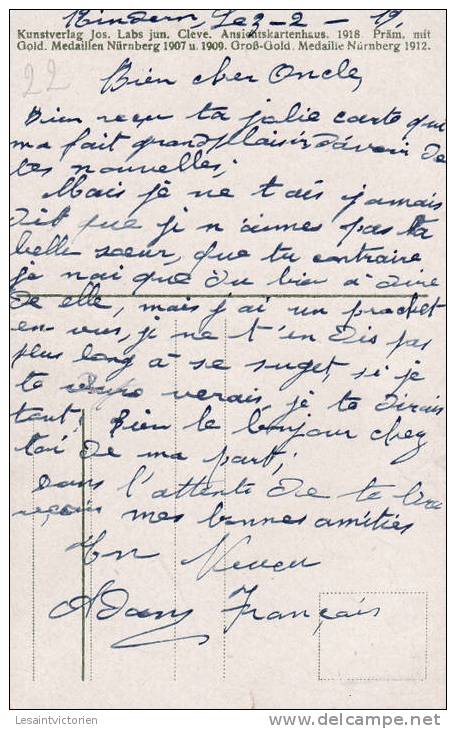 Rindern, Le 3-2-19.
Kunstverlag Jos. Labs jun. Cleve. Ansichtskartenhaus. 1918 Präm. mit
Gold. Medaillen Nürnberg 1907 u. 1909. Groß-Gold. Medaille Nürnberg 1912.
22
Bien cher Oncle,
Bien reçu ta jolie carte qui
ma fait grand plaisir d'avoir de
tes nouvelles;
Mais je ne t'ais jamais
dit que je n'aimes pas ta
belle sœur, que tu contraire
je n'ai que du bien à dire
de elle, mais j'ai un prochet
en vus, je ne t'en dis pas
plus long à se suget, si je
te verais je te dirais
tout; Bien le bonjour chez
toi de ma part;
Dans l'attente de te lire
reçois mes bonnes amitiés
Ton Neveu
Adam Français
Lesaintvictorien
www.delcampe.net